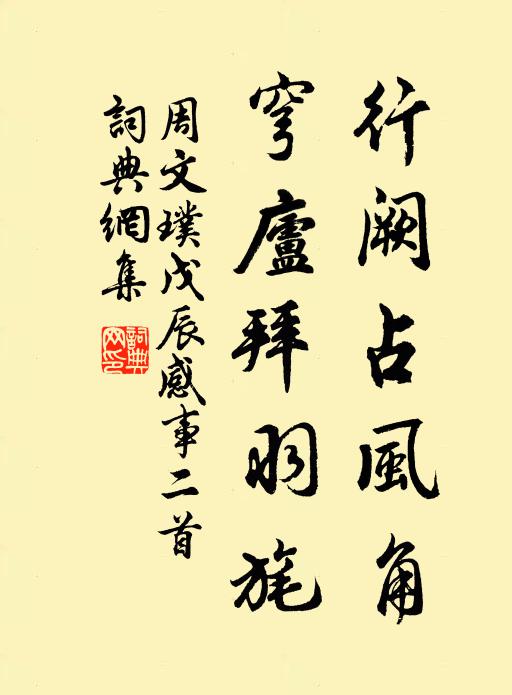 行阙占風角
穹廬拜羽旄
周文璞戊辰感事二首
詞典網集
詞典網印